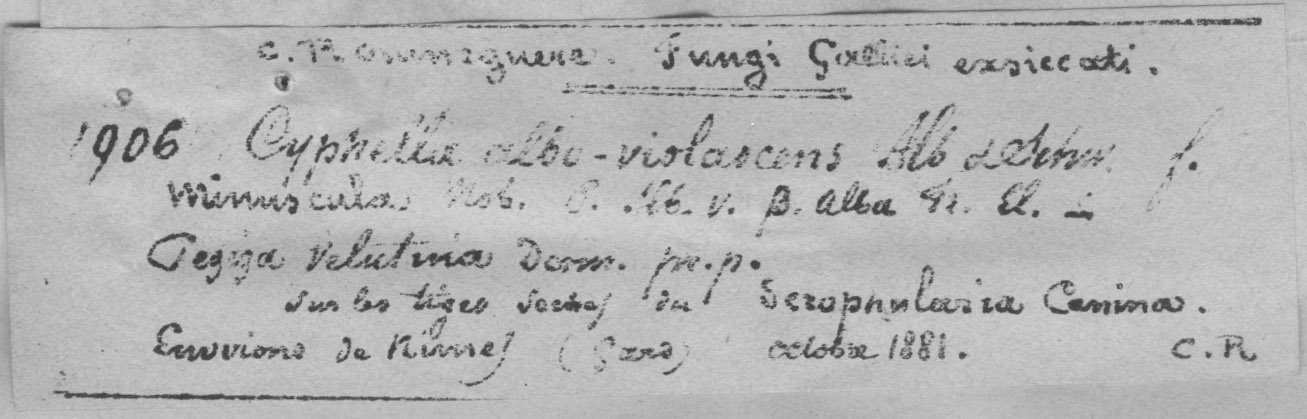 C. Roumeguere. Fungi Gallici exsiccati.
1906 Cyphella albo-violascens Alb & Schw. f.
minuscula Nob. C. Alb. v. β. alba Fr. El. =
Peziza Velutina Dorm. pr. p.
sur les tiges seches du Scrophularia Canina.
Environs de Nimes (Gard) octobre 1881. C. R